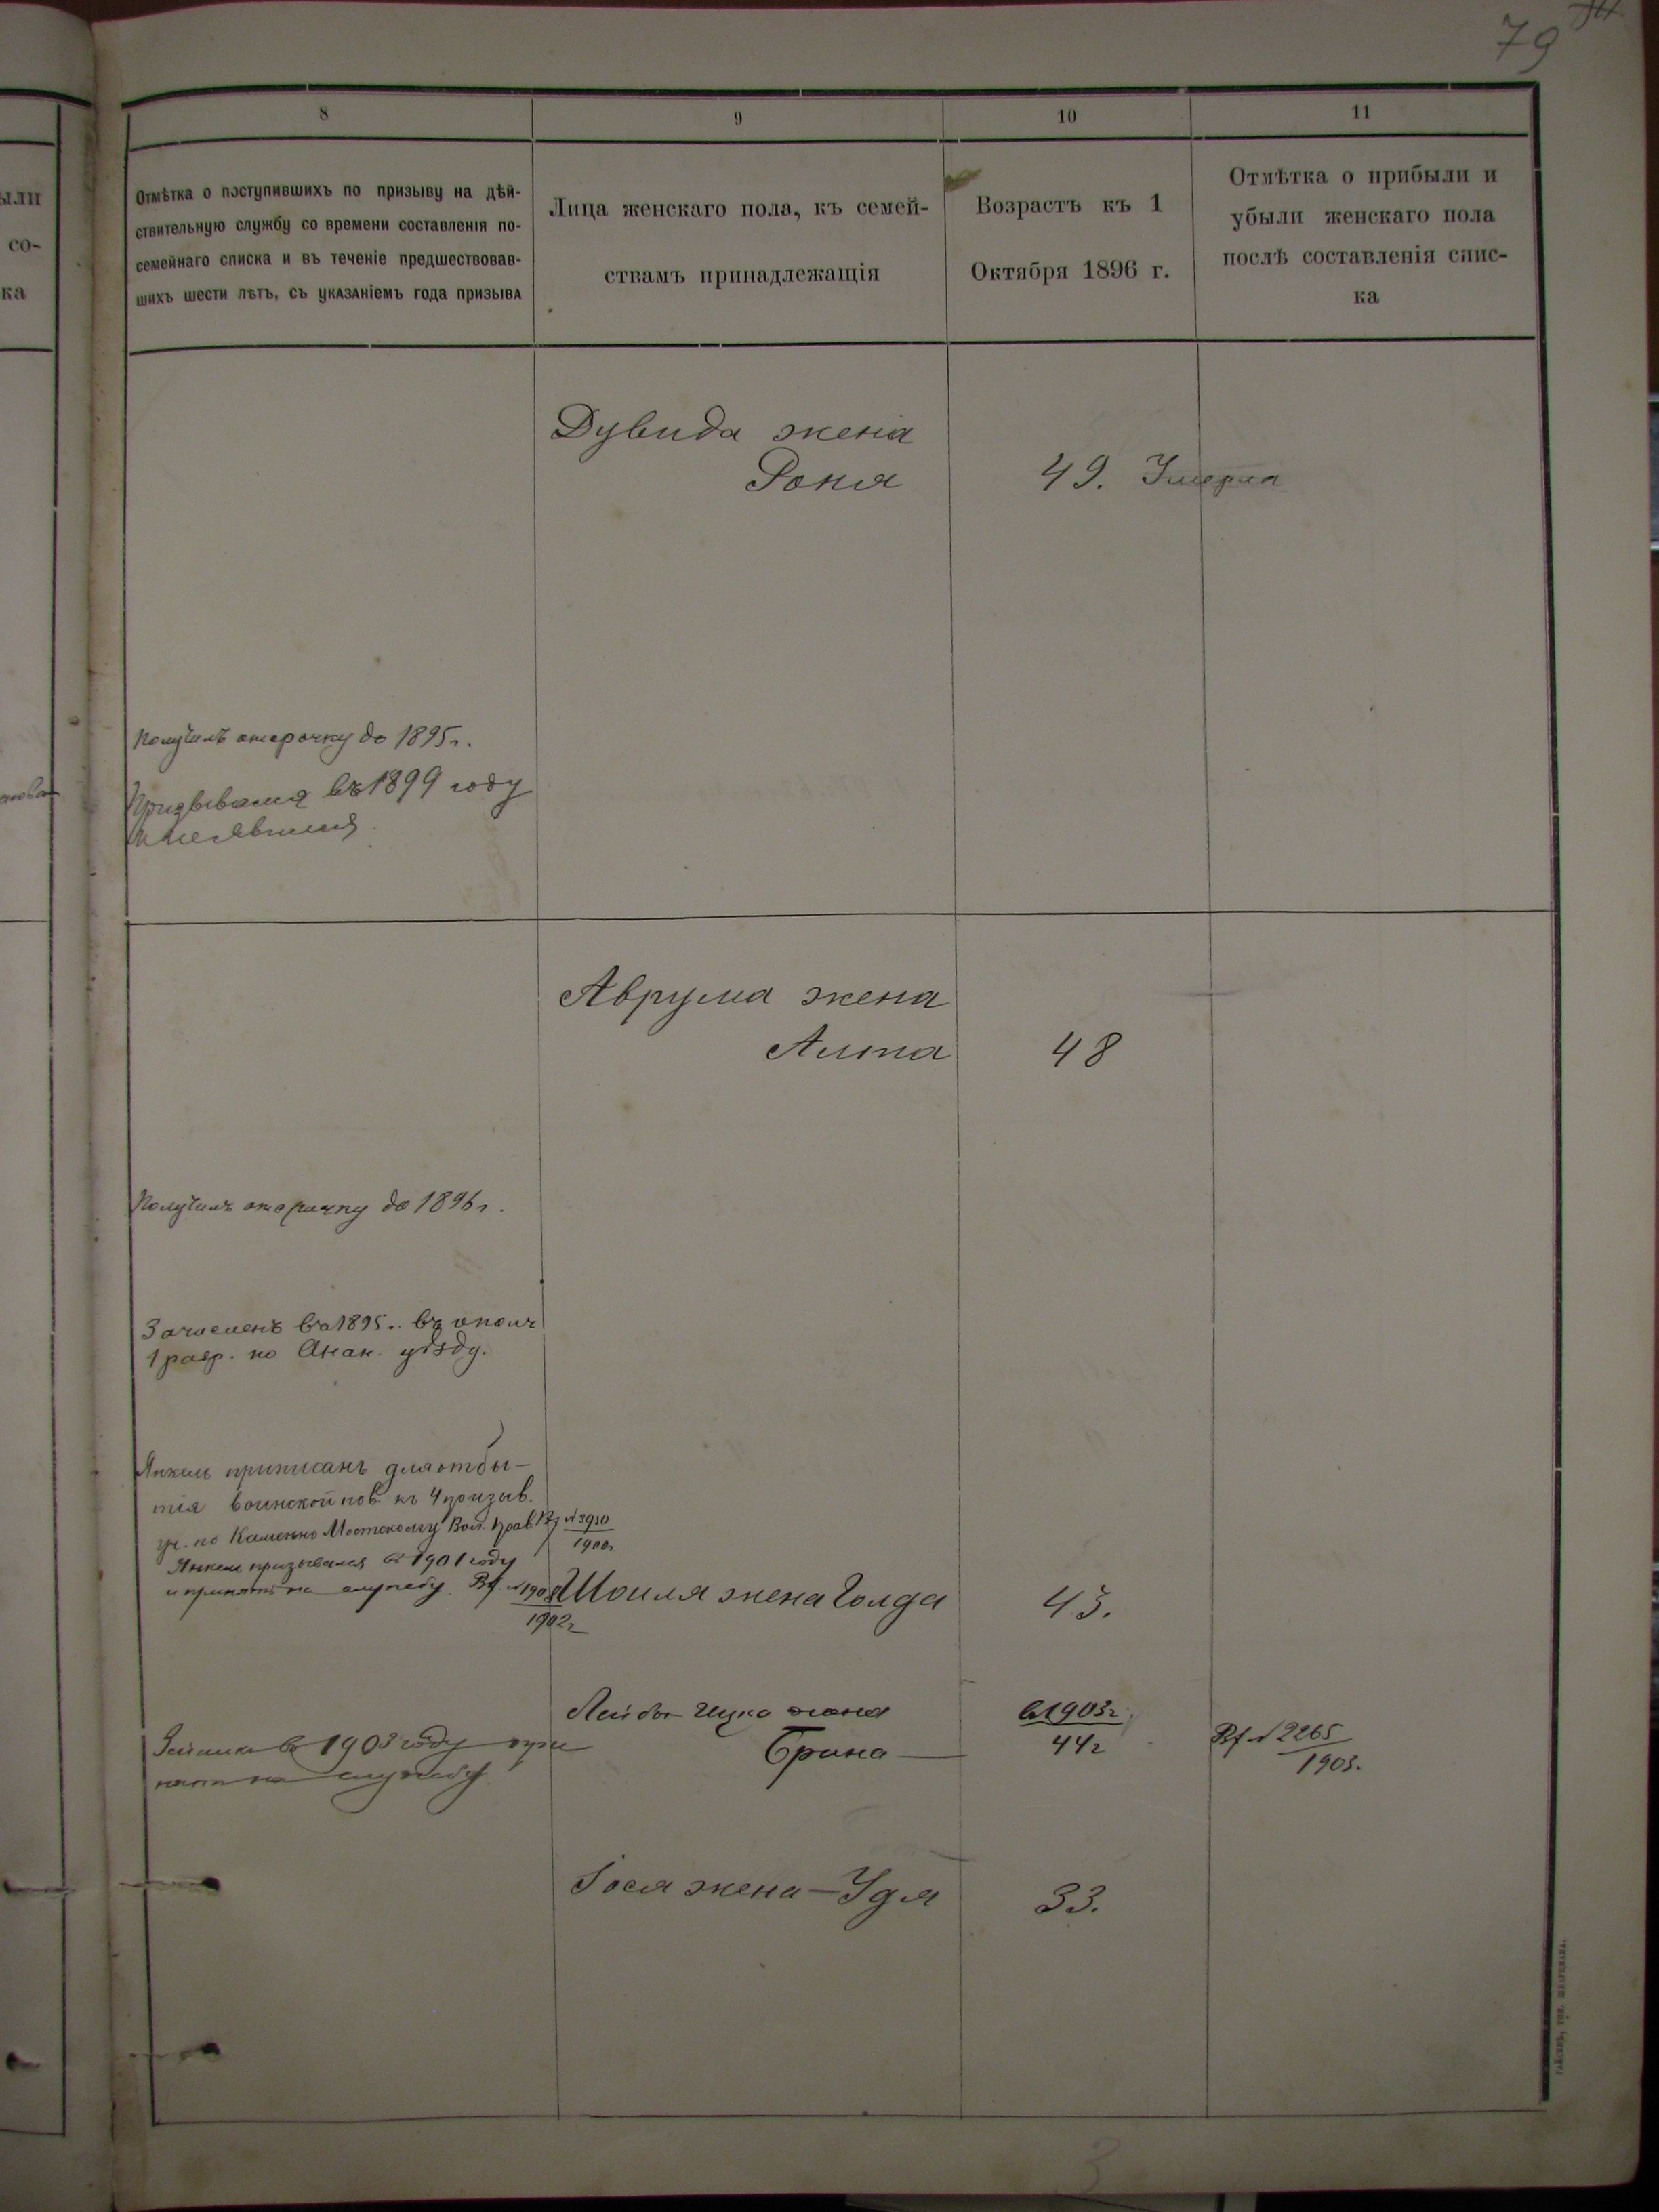 79
8
9
10
11
Отмѣтка о поступившихъ по призыву на дѣй-
ствительную службу со времени составленія по-
семейнаго списка и въ теченіе предшествовав-
шихъ шести лѣтъ, съ указаніемъ года призыва
Лица женскаго пола, къ семей-
ствамъ принадлежащія
Возрастъ къ 1
Октября 1896 г.
Отмѣтка о прибыли и
убыли женскаго пола
послѣ составленія спис-
ка
ыли
со-
ка
Дувида жена
Роня
49. Умерла
Получилъ отсрочку до 1895 г.
Призывался въ 1899 году
Аврума жена
48
Получилъ отсрочку до 1896 г.
Зачисленъ въ 1895 г. въ ополч
1 разр. по Анан. уѣзду.
Янкель приписанъ для отбы-
тія воинской пов. къ 4 призыв.
уч. по Каменно Мостскому Вол. Прав. № 3910
1900г
Янкель призывался въ 1901 году
и принятъ на службу
1902г
Шоиля жена Голда
43.
Лейбы Ицка жена
Брана
в 1903г.
44г
№ 2265
1903.
въ 1903 году при
нятъ на службу
Іося жена - Удля
33.